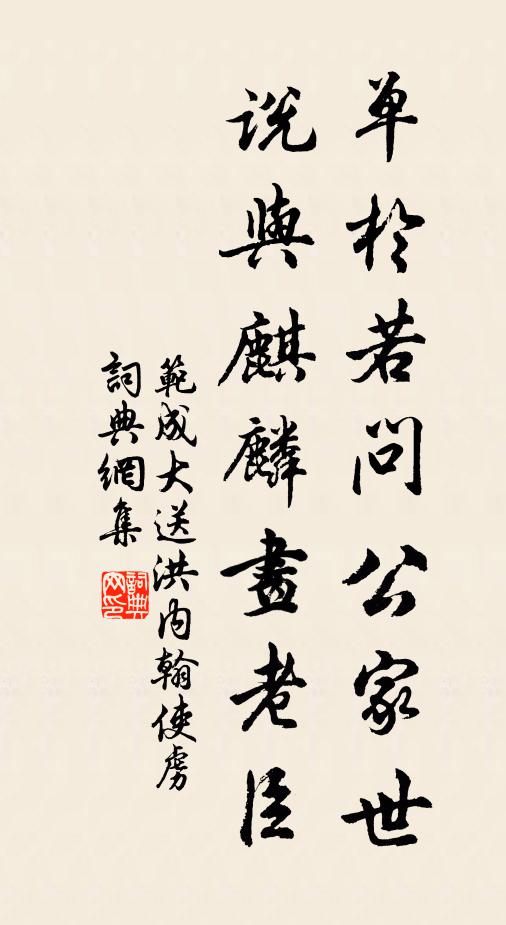 单於若问公家世
说与麒麟画老臣
範成大送洪内翰使虏
詞典網集
詞典
网印